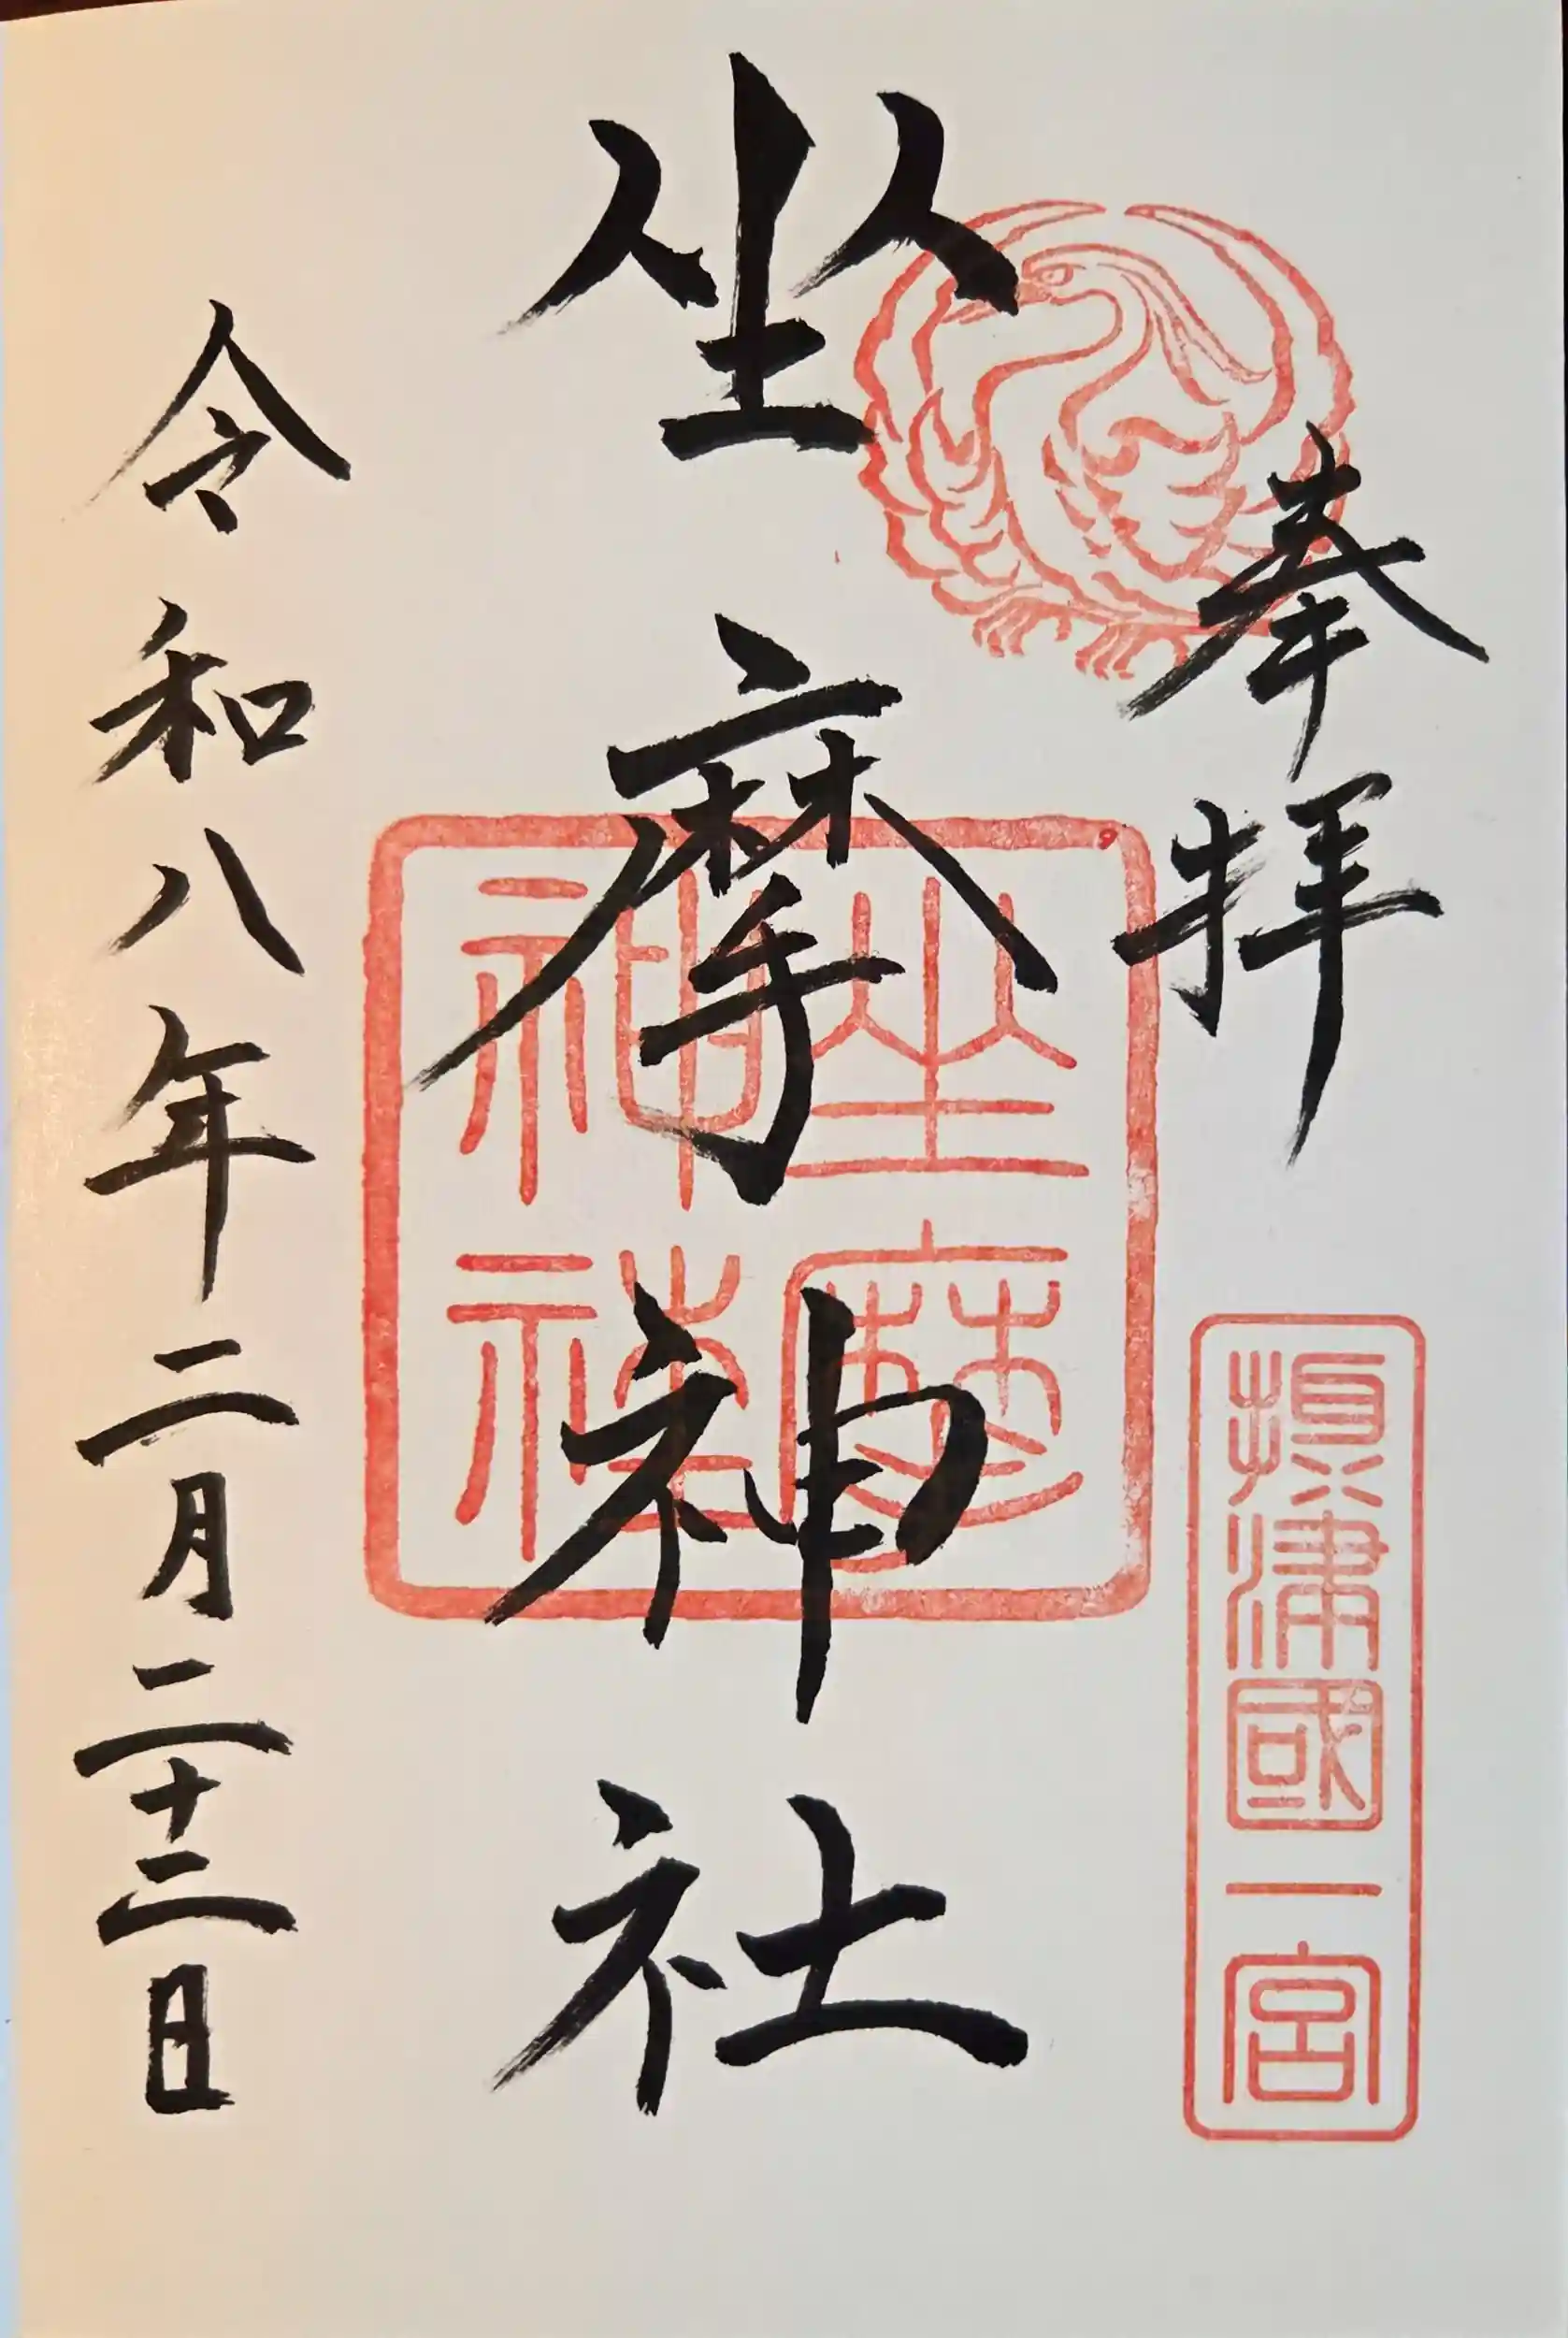 奉拝
摂津國一宮
坐摩神社
坐摩神社
令和八年二月二十二日